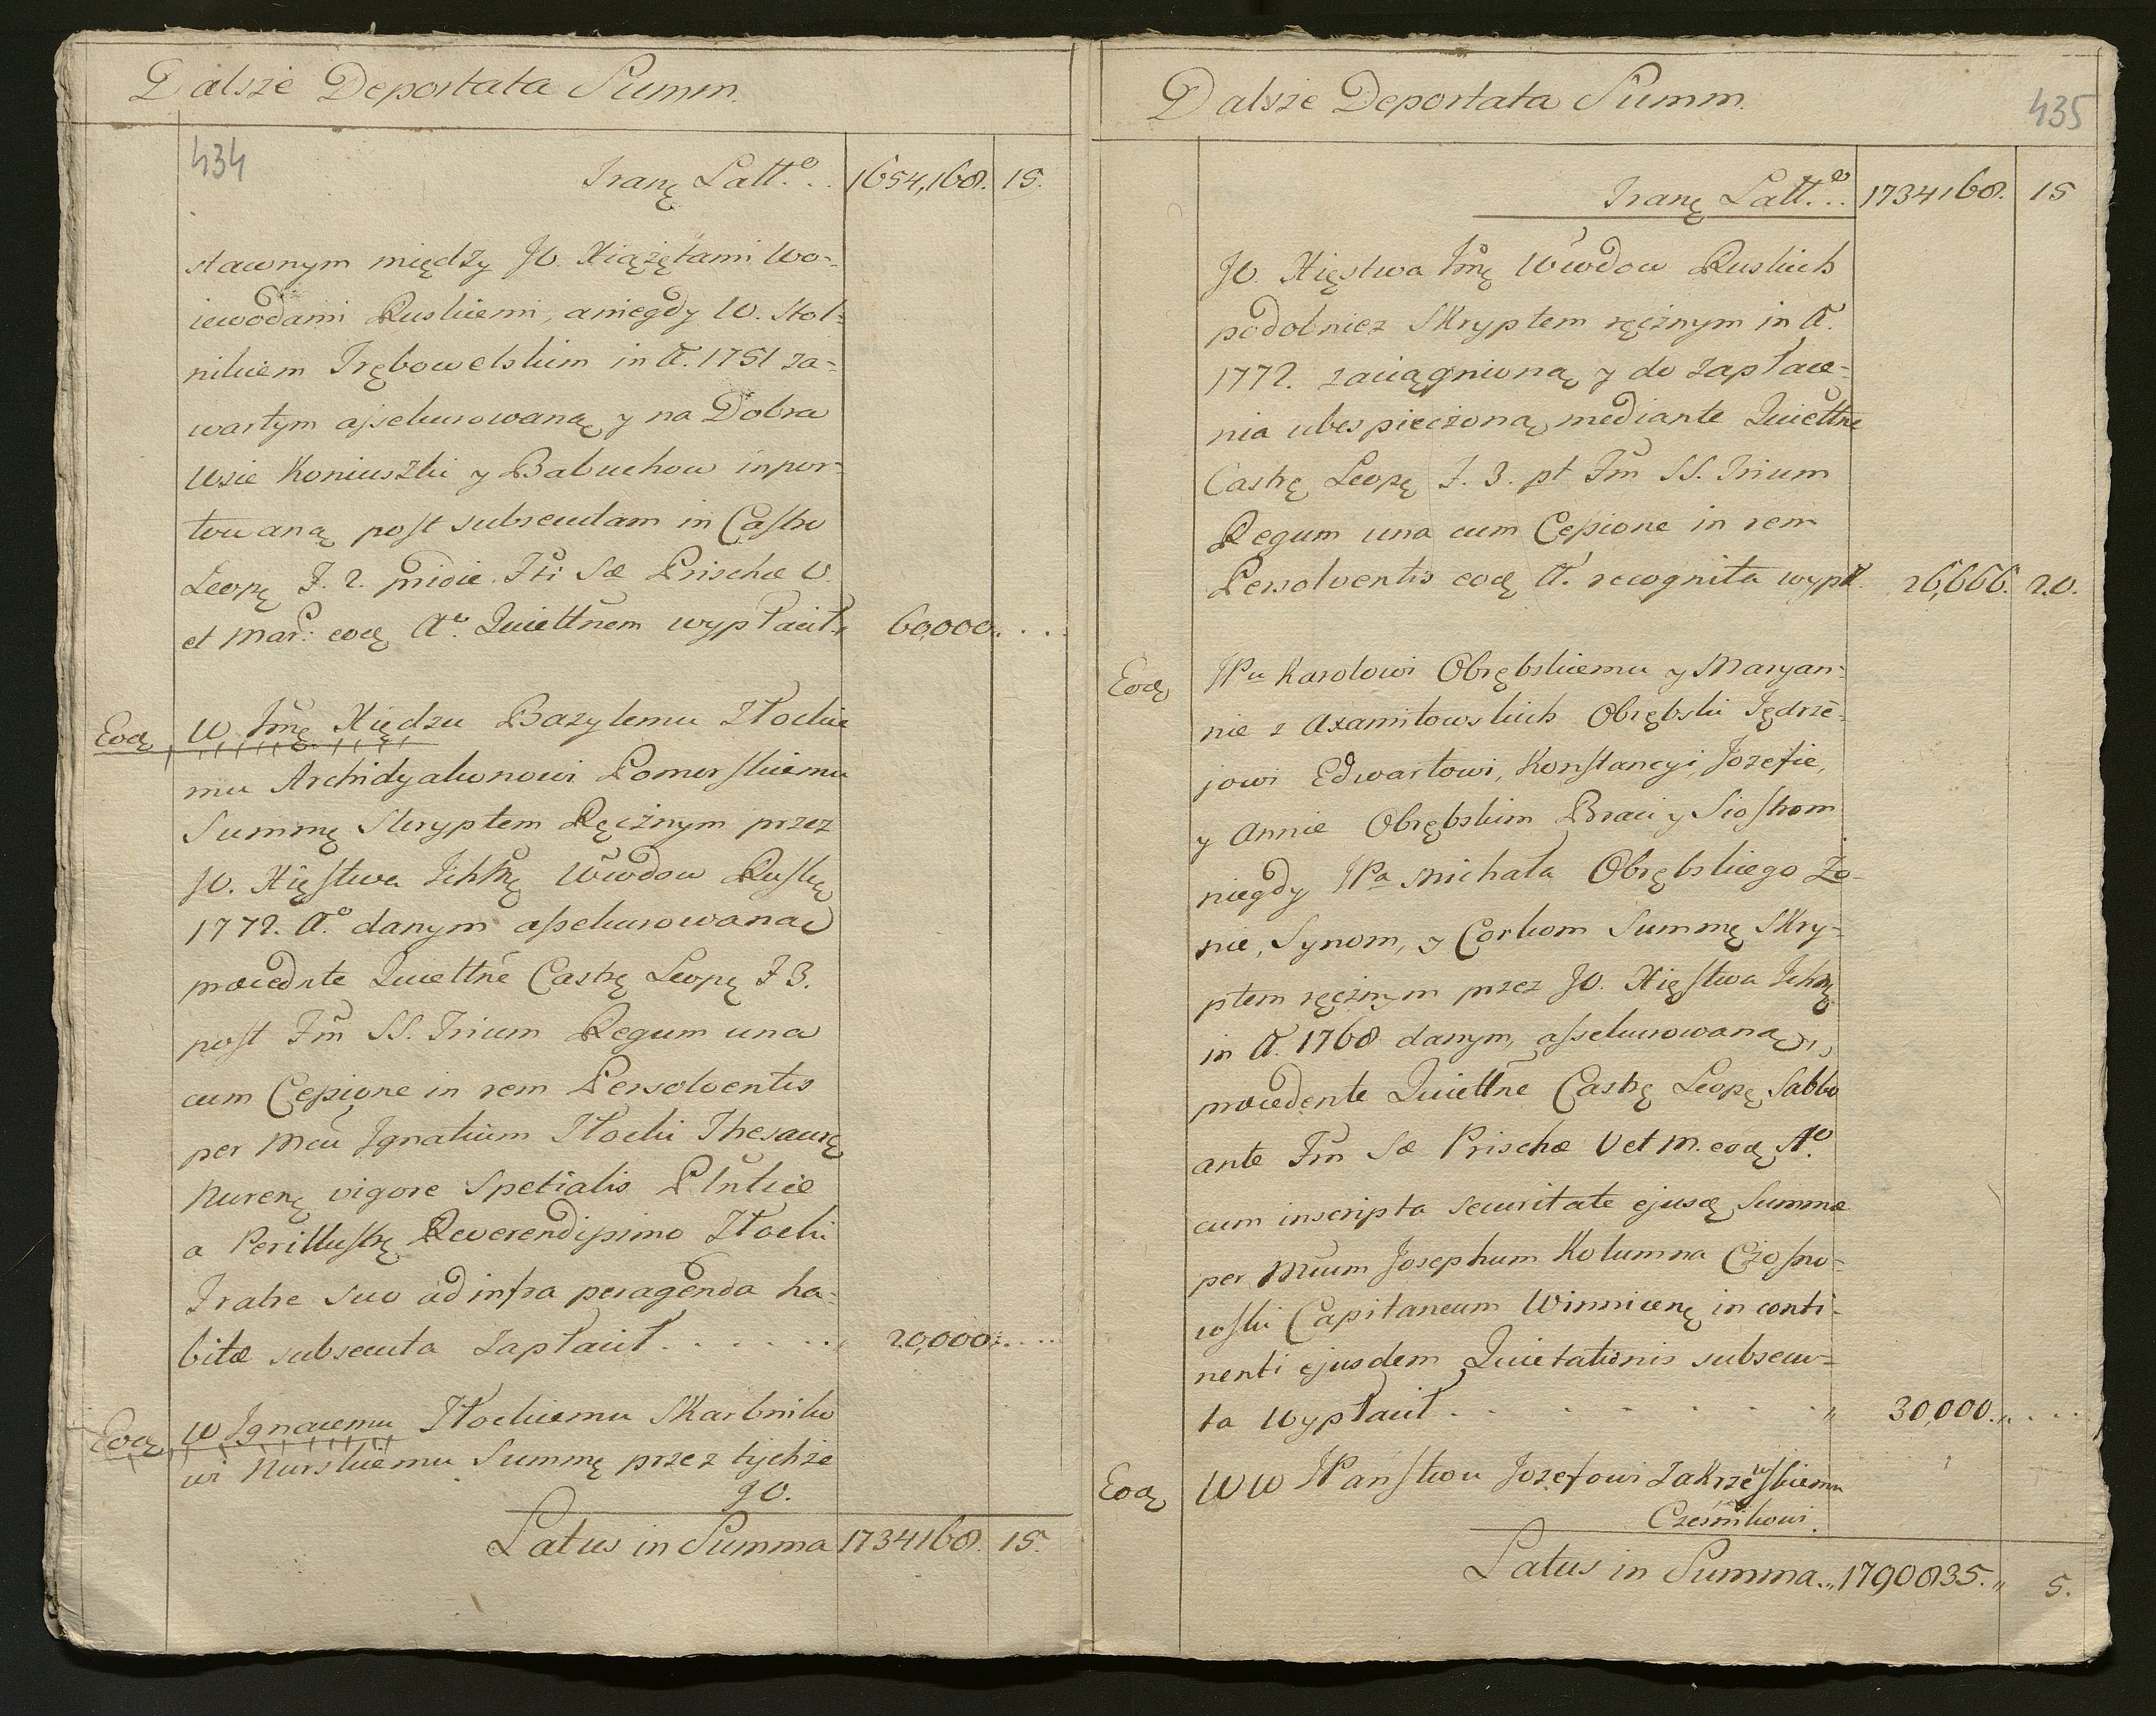 Dalsze Deportata Summ.
434
Tranę Latt.º . . 1654,168. 15.
stawnym między JO. Xiążętami Wo-
iewodami Ruskiemi, a niegdy W. Stol-
nikiem Trębowelskim in A. 1751 za-
wartym assekurowaną y na Dobra
Wsie Koniuszki y Babuchow inpor-
towaną post subsecutam in Castro
Leopę F. 2. pridie Fti Sæ Prischæ V.
et Mar: eodę Aº. Quiettnem wypłacił„ 60,000. . . .
Eodę W Jmę Xiędzu Bazylemu Złockie
mu Archidyakonowi Pomorskiemu
Summę Skryptem Ręcznym przez
JO. Xięstwa Ichmę Wwdow Ruskę
1772. Aº. danym assekurowaną
præcednte Quiettne Castrę Leopę F 3.
post Fm SS. Trium Regum una
cum Cessione in rem Persolventis
per Mcu Ignatium Złocki Thesaurę
Nurenę vigore Spetialis Plntiæ
a Perillustrę Reverendissimo Złocki
Fratre suo ad infra peragenda ha-
bitæ subsecuta zapłacił . . . . . . „ 20,000. . . .
Eodę W Ignacemu Złockiemu Skarbniko
wi Nurskiemu Summę przez tychże
JO.
Latus in Summa 1734168. 15.
Dalsze Deportata Summ.
435
Tranę Latt.º . . 1734168. 15
JO. Xięstwa Jmę Wwdow Ruskich
podobniez Skryptem ręcznym in A.
1772. zaciągnioną y do zapłace-
nia ubespieczoną mediante Quiettne
Castrę Leopę F. 3. pt Fm SS. Trium
Regum una cum Cessione in rem
Persolventis eodę A. recognita wypł. 26,666. 20.
Eodę JPu Karolowi Obrębskiemu y Maryan-
nie z Axamitowskich Obrębski Jędrze-
jowi Edwartowi, Konstancyi, Jozefie,
y Annie Obrębskim Braci y Siostrom
niegdy JPa Michała Obrębskiego Żo-
nie, Synom, y Corkom Summę Skry-
ptem ręcznym przez JO. Xięstwa Ichmę
in A. 1768 danym, assekurowaną,
præcedente Quiettne Castrę Leopę Sabbo
ante Fm Sæ Prischæ V et M. eodę Aº.
cum inscripta securitate ejusdę Summæ
per Mcum Josephum Kolumna Czosno-
wski Capitaneum Winnicenę in conti-
nenti ejusdem Quietationis subsecu-
ta Wypłacił . . . . . . . „ 30,000. „ . . .
Eodę WW JPanstwu Jozefowi Zakrzewskiemu
Czesnikowi.
Latus in Summa . „ 1790835. „ 5.